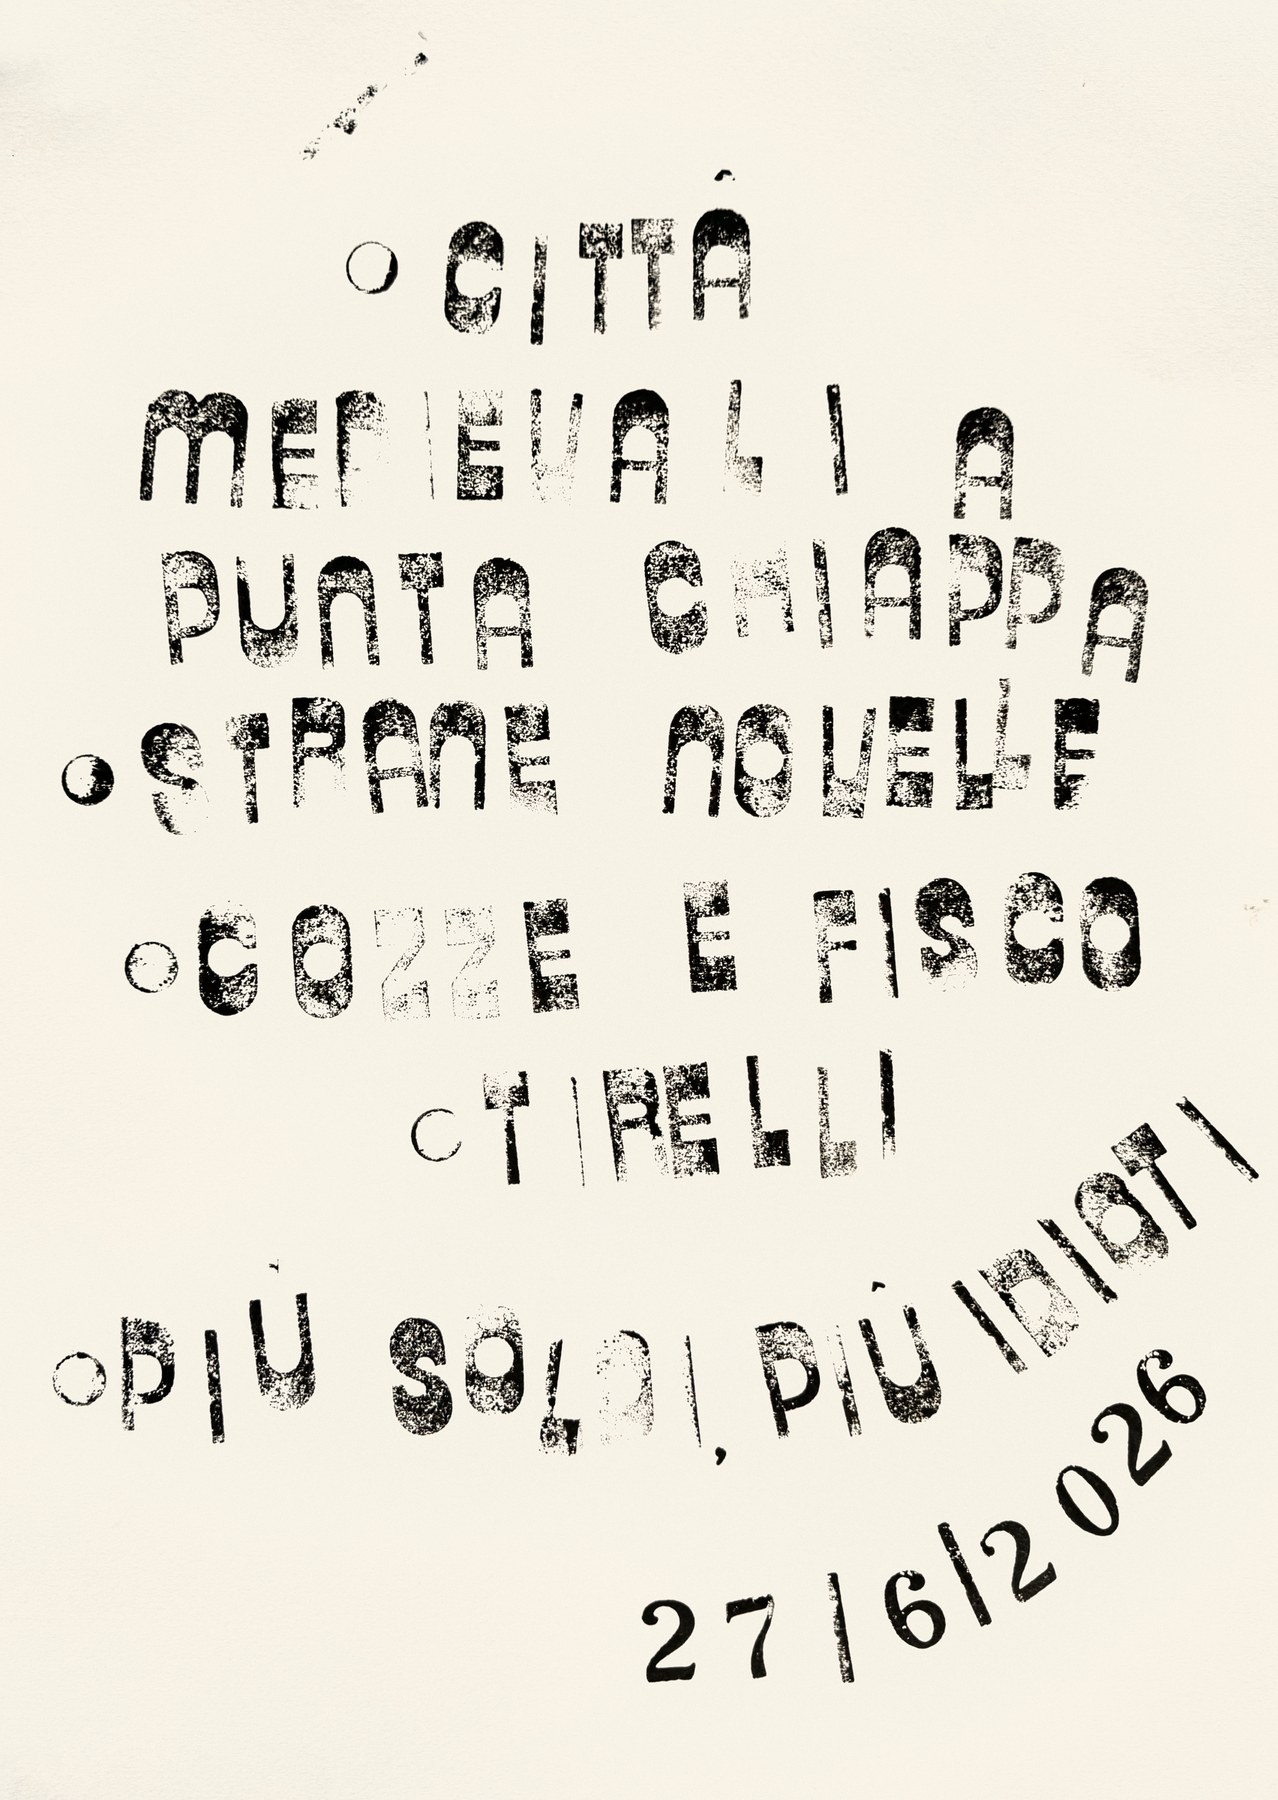 CITTÀ
MEDIEVALI A
PUNTA CHIAPPA
STRANE NOVELLE
COZZE E FISCO
TIRELLI
PIÙ SOLDI, PIÙ IDIOTI
27/6/2026